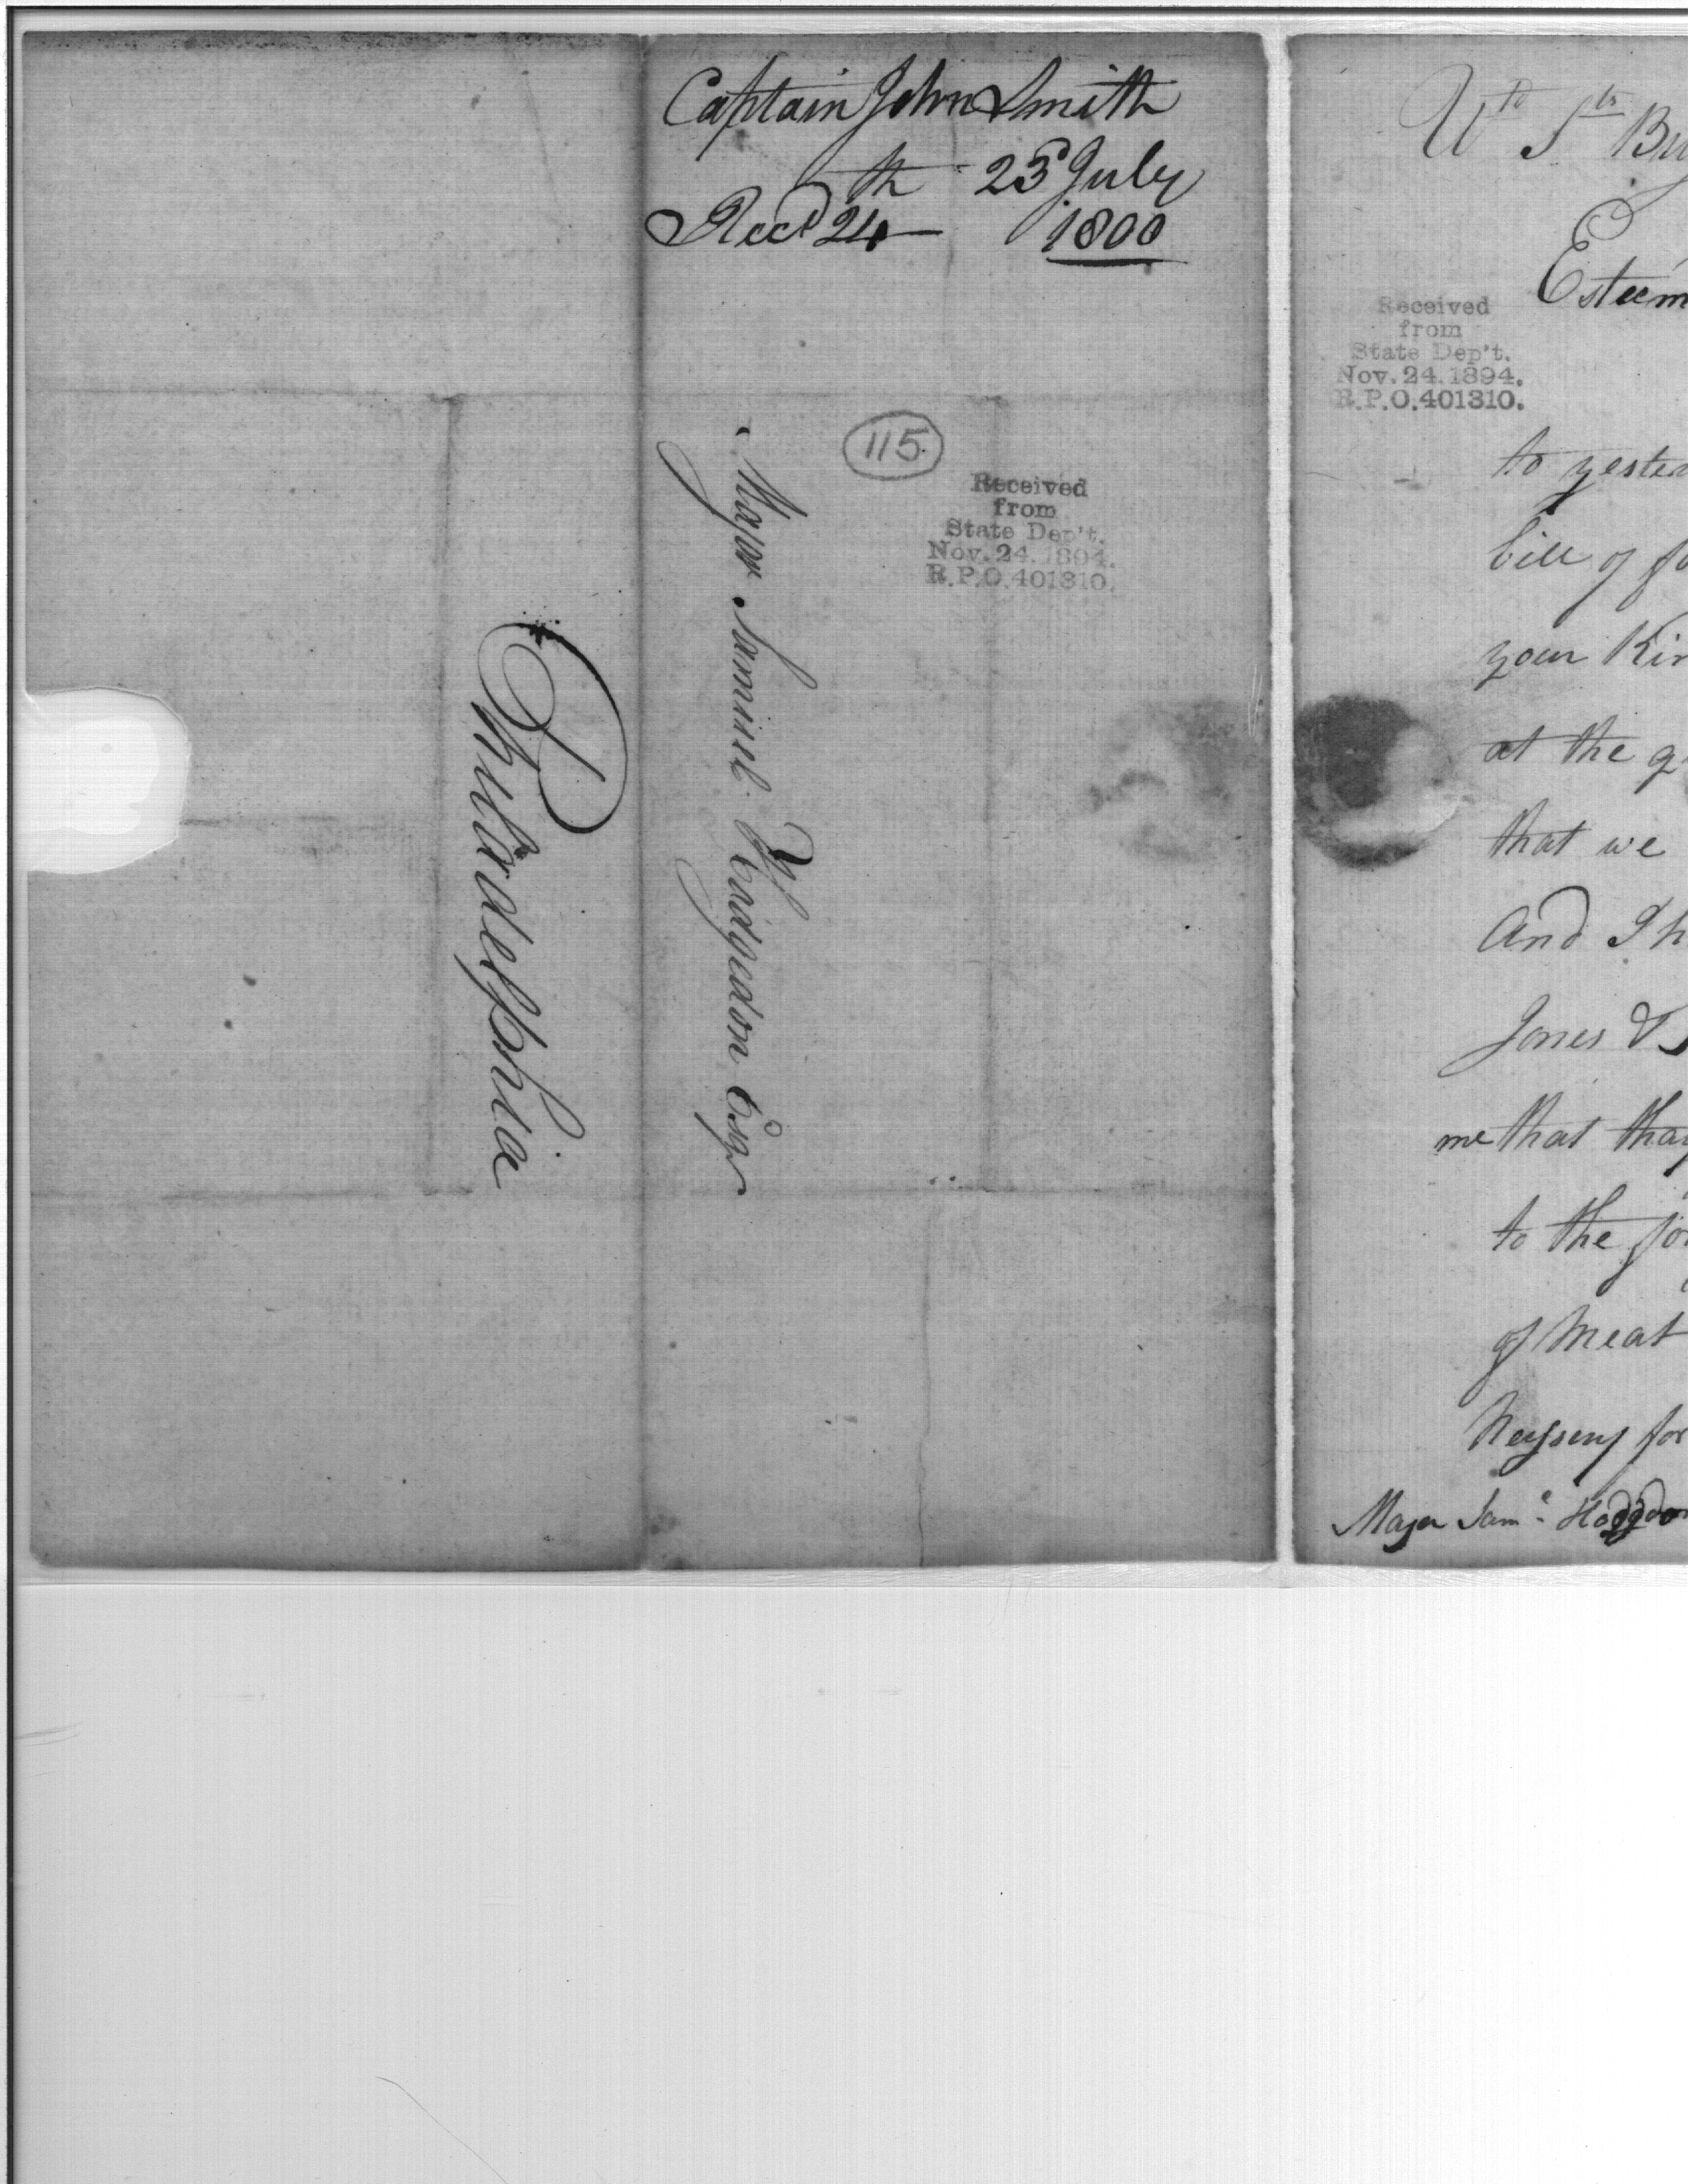 Captain John Smith
23d July
Recd 24th 1800
115
Received
from
State Dep't.
Nov. 24. 1894.
R.P.O. 401310.
Major Samuel Hodgdon Esqr
Philadelphia
Utd Sts
Esteem
Received
from
State Dep't.
Nov. 24. 1894.
R.P.O. 401310.
to yester
bill of
your Kin
at the
that we
And I h
Jones &
me that thay
to the
of Meat
for
Major Saml Hodgdon